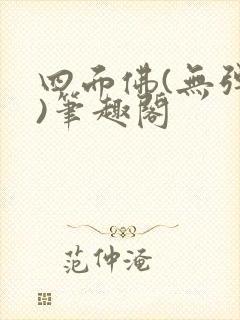 四面佛(無彈
)筆趣閣
范仲淹